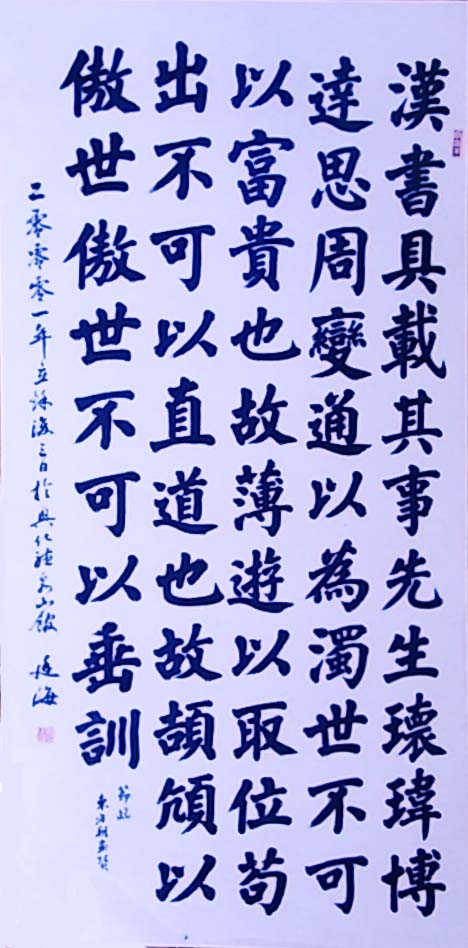 漢書具載其事先生瓌瑋博
達思周變通以為濁世不可
以富貴也故薄遊以取位苟
出不可以直道也故頡頏以
傲世傲世不可以垂訓
節臨
東方朔画贊
二零零零一年立秋後三日於興化山館 海